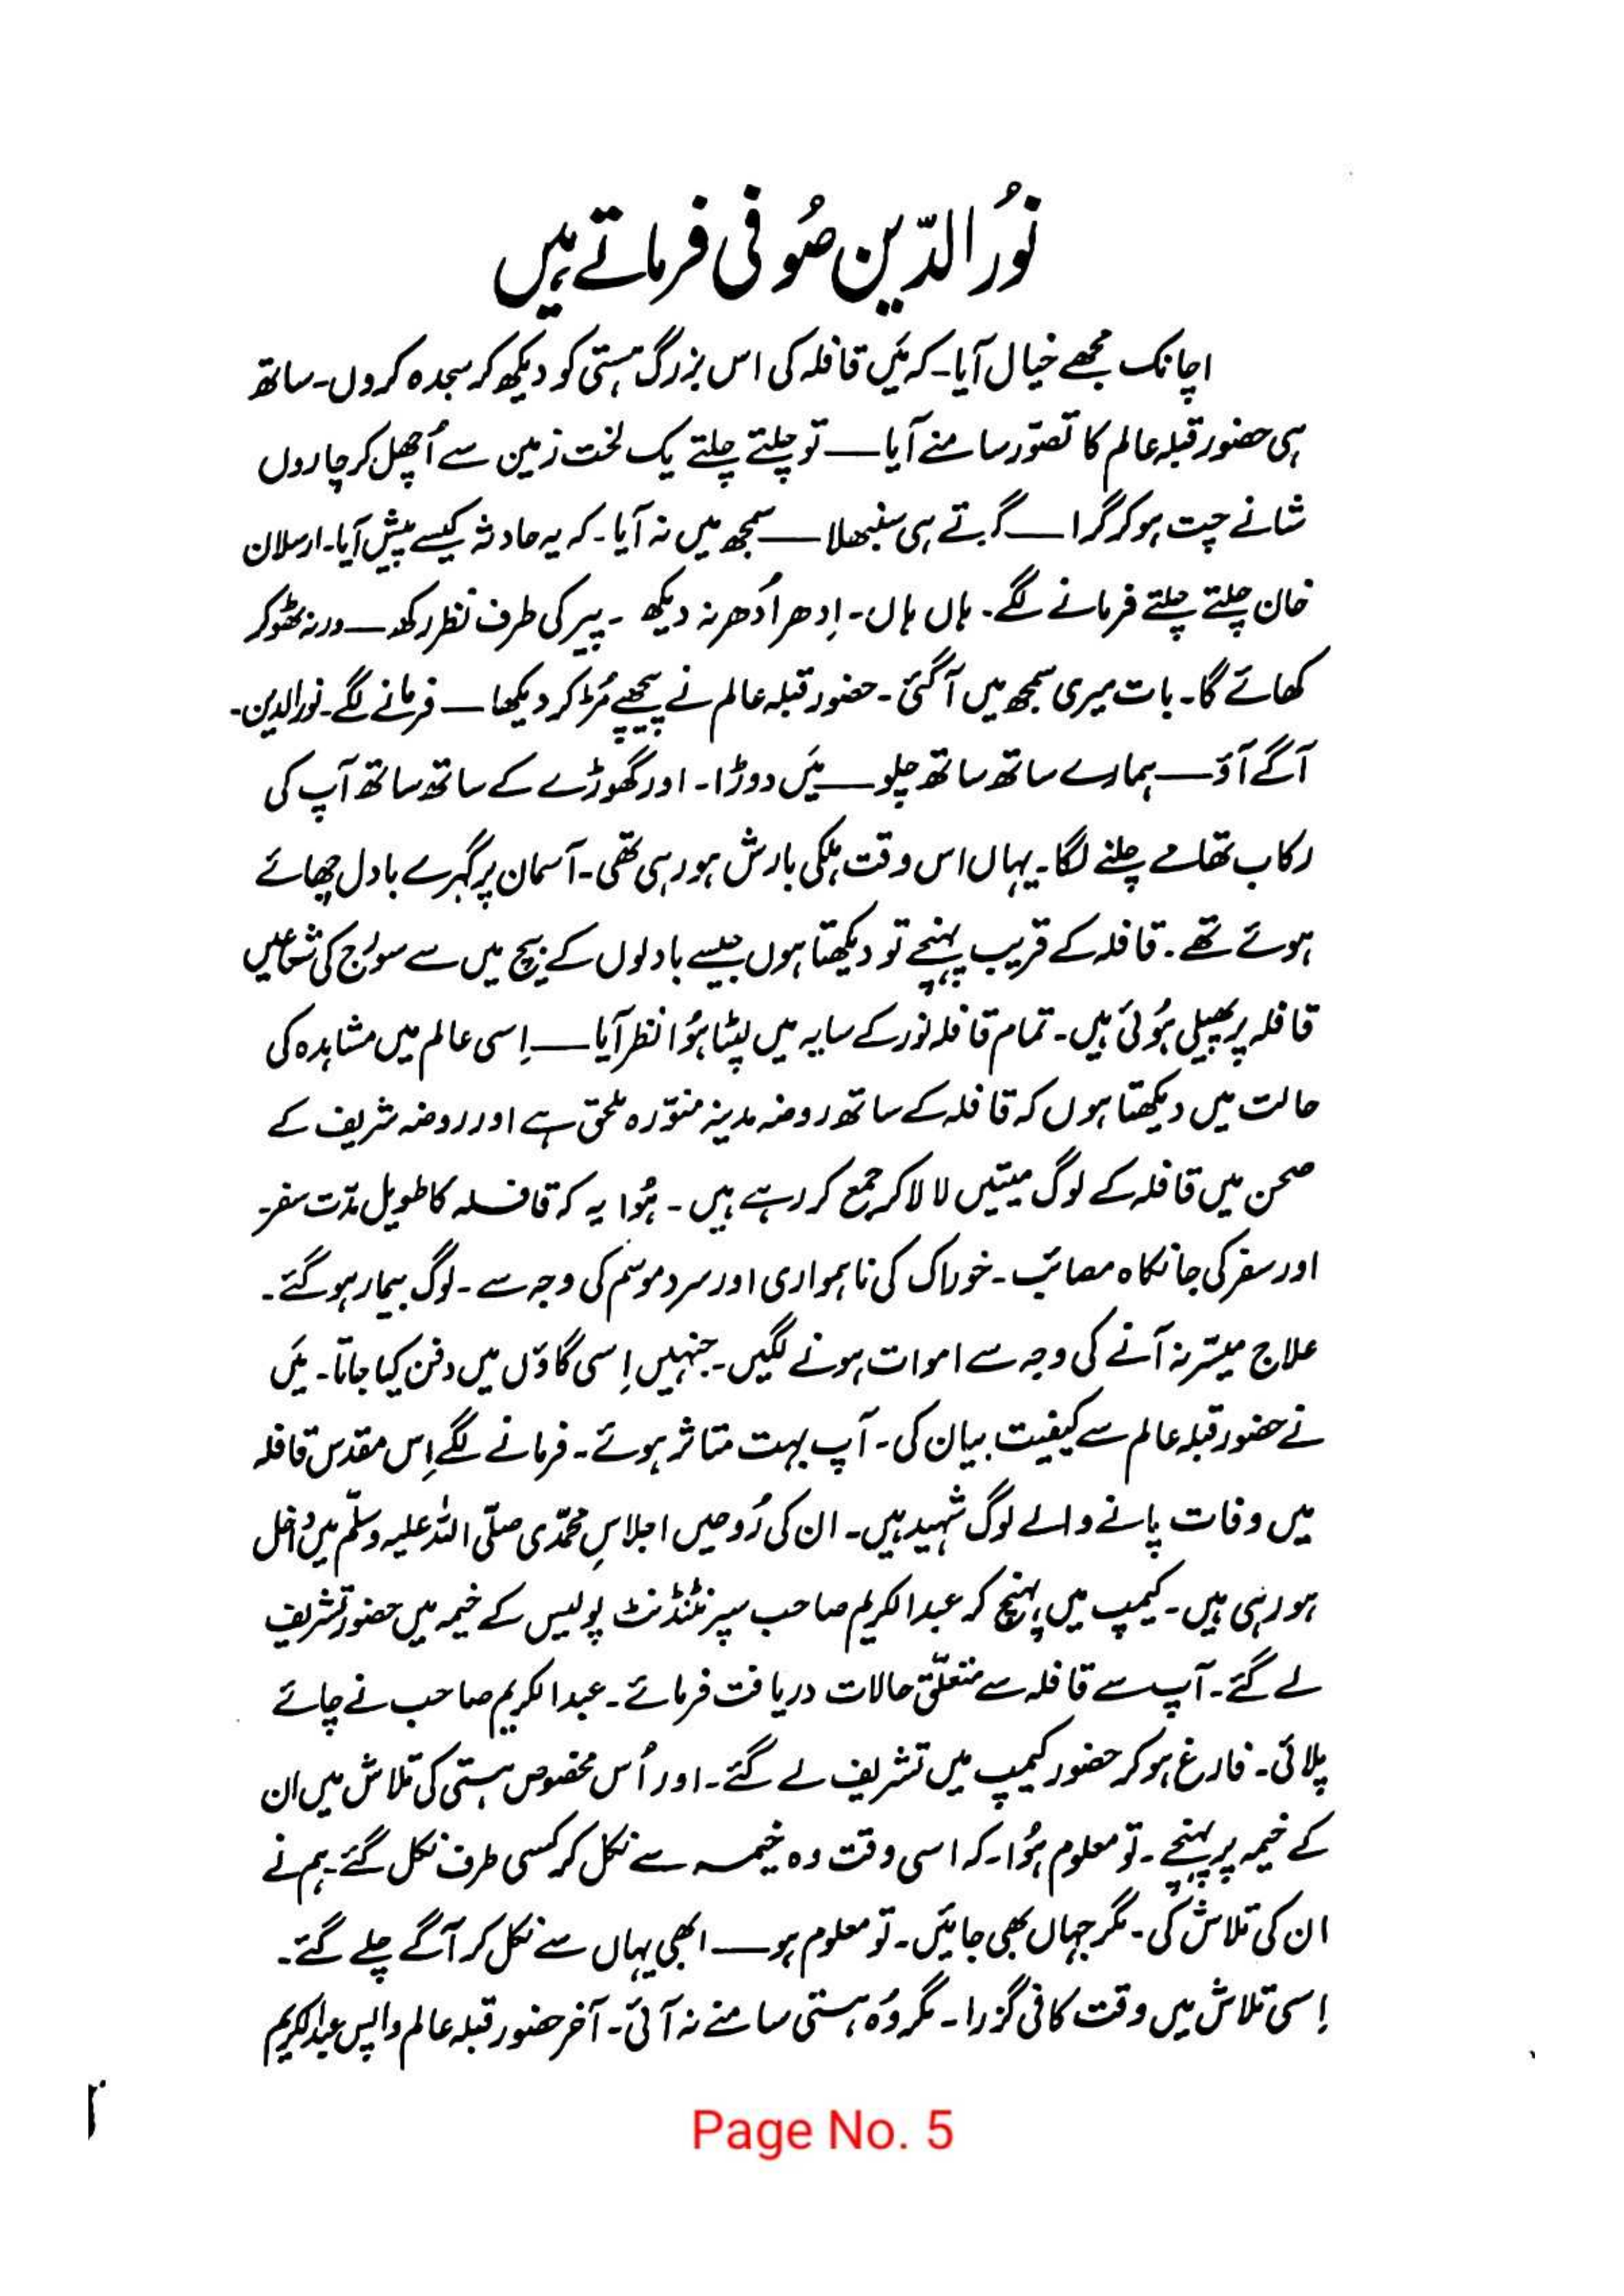 نُورُ الدّین صُوفی فرماتے ہیں
اچانک مجھے خیال آیا۔ کہ مَیں قافلہ کی اس بزرگ ہستی کو دیکھ کر سجدہ کروں۔ ساتھ
ہی حضور قبلہ عالم کا تصوّر سامنے آیا — تو چلتے چلتے یک لخت زمین سے اُچھل کر چاروں
شانے چت ہو کر گرا — گرتے ہی سنبھلا — سمجھ میں نہ آیا۔ کہ یہ حادثہ کیسے پیش آیا۔ ارسلان
خان چلتے چلتے فرمانے لگے۔ ہاں ہاں۔ اِدھر اُدھر نہ دیکھ ۔ پیر کی طرف نظر رکھ — ورنہ ٹھوکر
کھائے گا۔ بات میری سمجھ میں آگئی ۔ حضور قبلہ عالم نے پیچھے مُڑ کر دیکھا — فرمانے لگے۔ نورالدین۔
آگے آؤ — ہمارے ساتھ ساتھ چلو — مَیں دوڑا۔ اور گھوڑے کے ساتھ ساتھ آپ کی
رکاب تھامے چلنے لگا۔ یہاں اس وقت ہلکی بارش ہو رہی تھی۔ آسمان پر گہرے بادل چھائے
ہوئے تھے۔ قافلہ کے قریب پہنچے تو دیکھتا ہوں جیسے بادلوں کے بیچ میں سے سورج کی شعاعیں
قافلہ پر پھیلی ہُوئی ہیں۔ تمام قافلہ نور کے سایہ میں لپٹا ہُوا نظر آیا — اِسی عالم میں مشاہدہ کی
حالت میں دیکھتا ہوں کہ قافلہ کے ساتھ روضہ مدینہ منوّرہ ملحق ہے اور روضہ شریف کے
صحن میں قافلہ کے لوگ میتیں لا لا کر جمع کر رہے ہیں ۔ ہُوا یہ کہ قافلہ کا طویل مدّت سفر۔
اور سفر کی جانکاہ مصائب۔ خوراک کی ناہمواری اور سرد موسم کی وجہ سے ۔ لوگ بیمار ہو گئے۔
علاج میسّر نہ آنے کی وجہ سے اموات ہونے لگیں۔ جنہیں اِسی گاؤں میں دفن کیا جاتا۔ مَیں
نے حضور قبلہ عالم سے کیفیت بیان کی۔ آپ بہت متاثر ہوئے۔ فرمانے لگے اِس مقدس قافلہ
میں وفات پانے والے لوگ شہید ہیں۔ ان کی رُوحیں اجلاسِ محمّدی صلّی اللہ علیہ وسلّم میں داخل
ہو رہی ہیں۔ کیمپ میں پہنچ کر عبدالکریم صاحب سپرنٹنڈنٹ پولیس کے خیمہ میں حضور تشریف
لے گئے۔ آپ سے قافلہ سے متعلّق حالات دریافت فرمائے۔ عبدالکریم صاحب نے چائے
پلائی۔ فارغ ہو کر حضور کیمپ میں تشریف لے گئے۔ اور اُس مخصوص ہستی کی تلاش میں ان
کے خیمہ پر پہنچے۔ تو معلوم ہُوا۔ کہ اسی وقت وہ خیمہ سے نکل کر کسی طرف نکل گئے۔ ہم نے
ان کی تلاش کی۔ مگر جہاں بھی جائیں۔ تو معلوم ہو — ابھی یہاں سے نکل کر آگے چلے گئے۔
اِسی تلاش میں وقت کافی گزرا۔ مگر وُہ ہستی سامنے نہ آئی۔ آخر حضور قبلہ عالم واپس عبدالکریم
Page No. 5